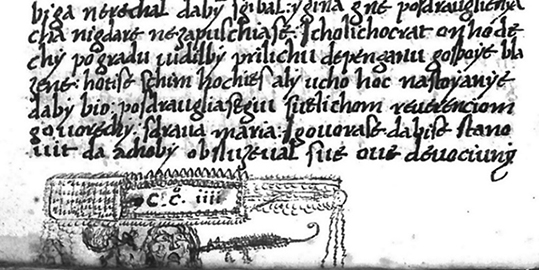 biga nerechal daby sgibal: ygina gne posdrauglienya
cha nigdare nezapuschiase: I cholichocrat on hode
chy po gradu vudilby prilichu depenganu gospoye bla
zene: hotise schim hochies aly ucho hoc nastoyanye
daby bio: posdraugliasegui suelichom reuerenciom
gouorechy: sdraua maria: Igouorase dabise stano
iuit da achoby obsluzeual sue oue deuociuny
C. C. iiii